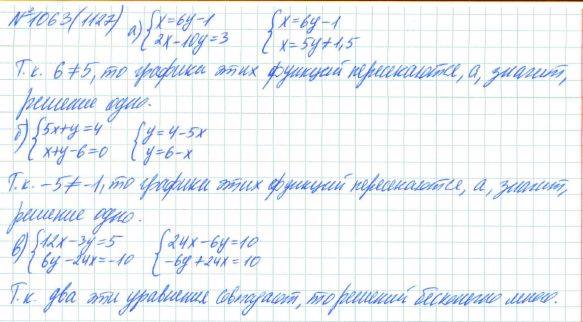 №1063(1127) а) {x=6y-1 {x=6y-1
2x-10y=3 x=5y+1,5
Т.к. 6≠5, то графики этих функций пересекаются, а, значит,
решение одно.
б) {5x+y=4 {y=4-5x
x+y-6=0 y=6-x
Т.к. -5≠-1, то графики этих функций пересекаются, а, значит,
решение одно.
в) {12x-3y=5 {24x-6y=10
6y-24x=-10 -6y+24x=10
Т.к. два эти уравнения совпадают, то решений бесконечно много.